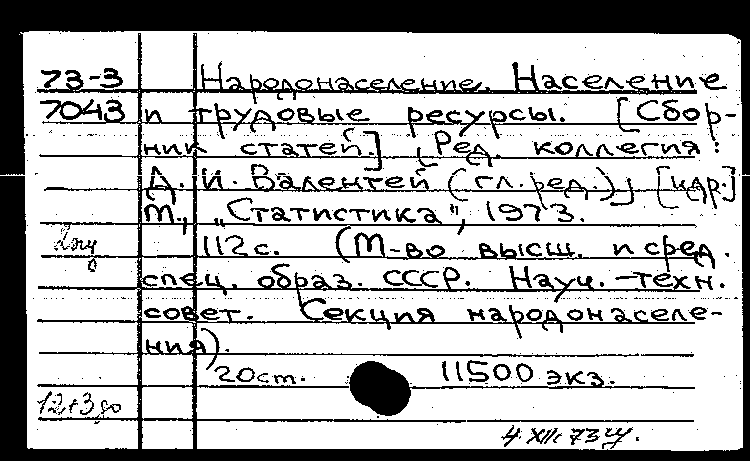 73-3 Народонаселение. Население
7043 и трудовые ресурсы. [Сбор-
ник статей.] [Ред. коллегия:
Д. И. Валентей (гл. ред.)] [и др.]
М., „Статистика“, 1973.
112 с. (М-во высш. и сред.
спец. образ. СССР. Науч.-техн.
совет. Секция народонаселе-
ния).
20 ст. 11500 экз.
12+3
4 XII 73